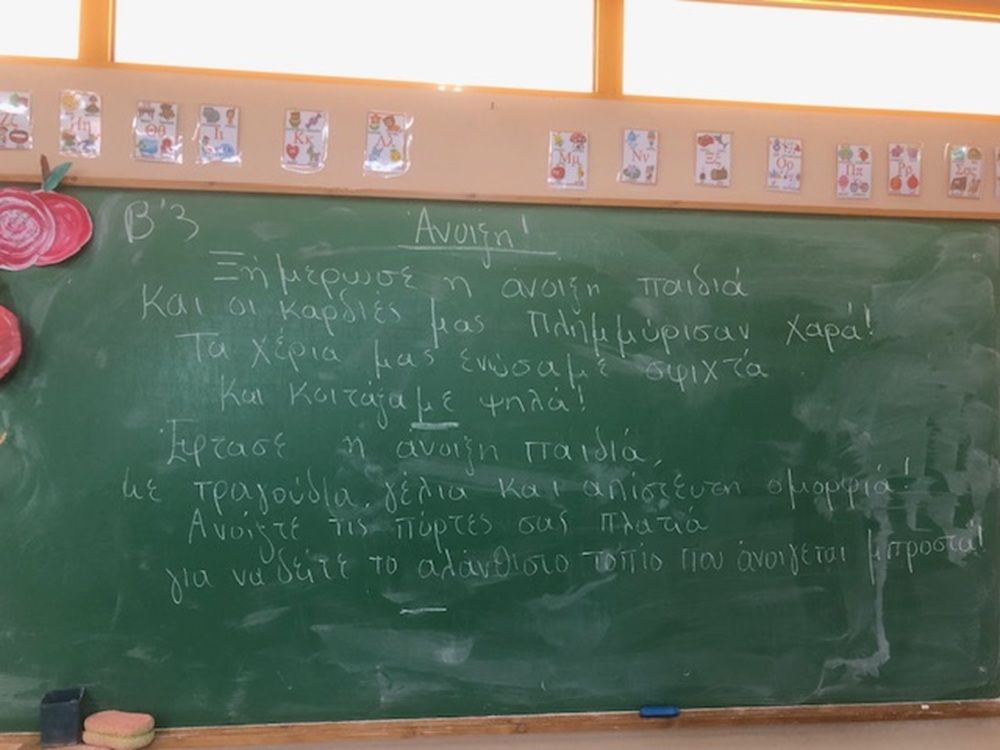 Ζζ Ηη Θθ Ιι Κκ Λλ Μμ Νν Ξξ Οο Ππ Ρρ Σσς
Β΄3 Άνοιξη!
Ξημέρωσε η άνοιξη παιδιά
Και οι καρδιές μας πλημμύρισαν χαρά!
Τα χέρια μας ενώσαμε σφιχτά
Και κοιτάξαμε ψηλά!
Έφτασε η άνοιξη παιδιά,
με τραγούδια, γέλια και απίστευτη ομορφιά!
Ανοίξτε τις πόρτες σας πλατιά
για να δείτε το αλάνθιστο τοπίο που ανοίγεται μπροστά!